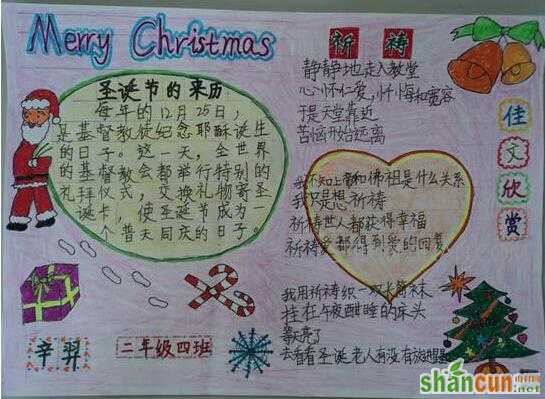 Merry Christmas
圣诞节的来历
每年的12月25日，
是基督教徒纪念耶酥诞生
的日子。这一天，全世界
的基督教会都举行特别的
礼拜仪式，交换礼物寄圣
诞卡，使圣诞节成为一
个普天同庆的日子。
辛羿
二年级四班
祈祷
静静地走入教堂
心怀仁爱，忏悔和宽容
于是天堂靠近
苦恼开始远离
我不知上帝和佛祖是什么关系
我只是想祈祷
祈祷世人都获得幸福
祈祷爱都得到爱的回复
我用祈祷织一双长筒袜
挂在午夜酣睡的床头
等亮了
去看看圣诞老人有没有放进
佳文欣赏
shancun
.net